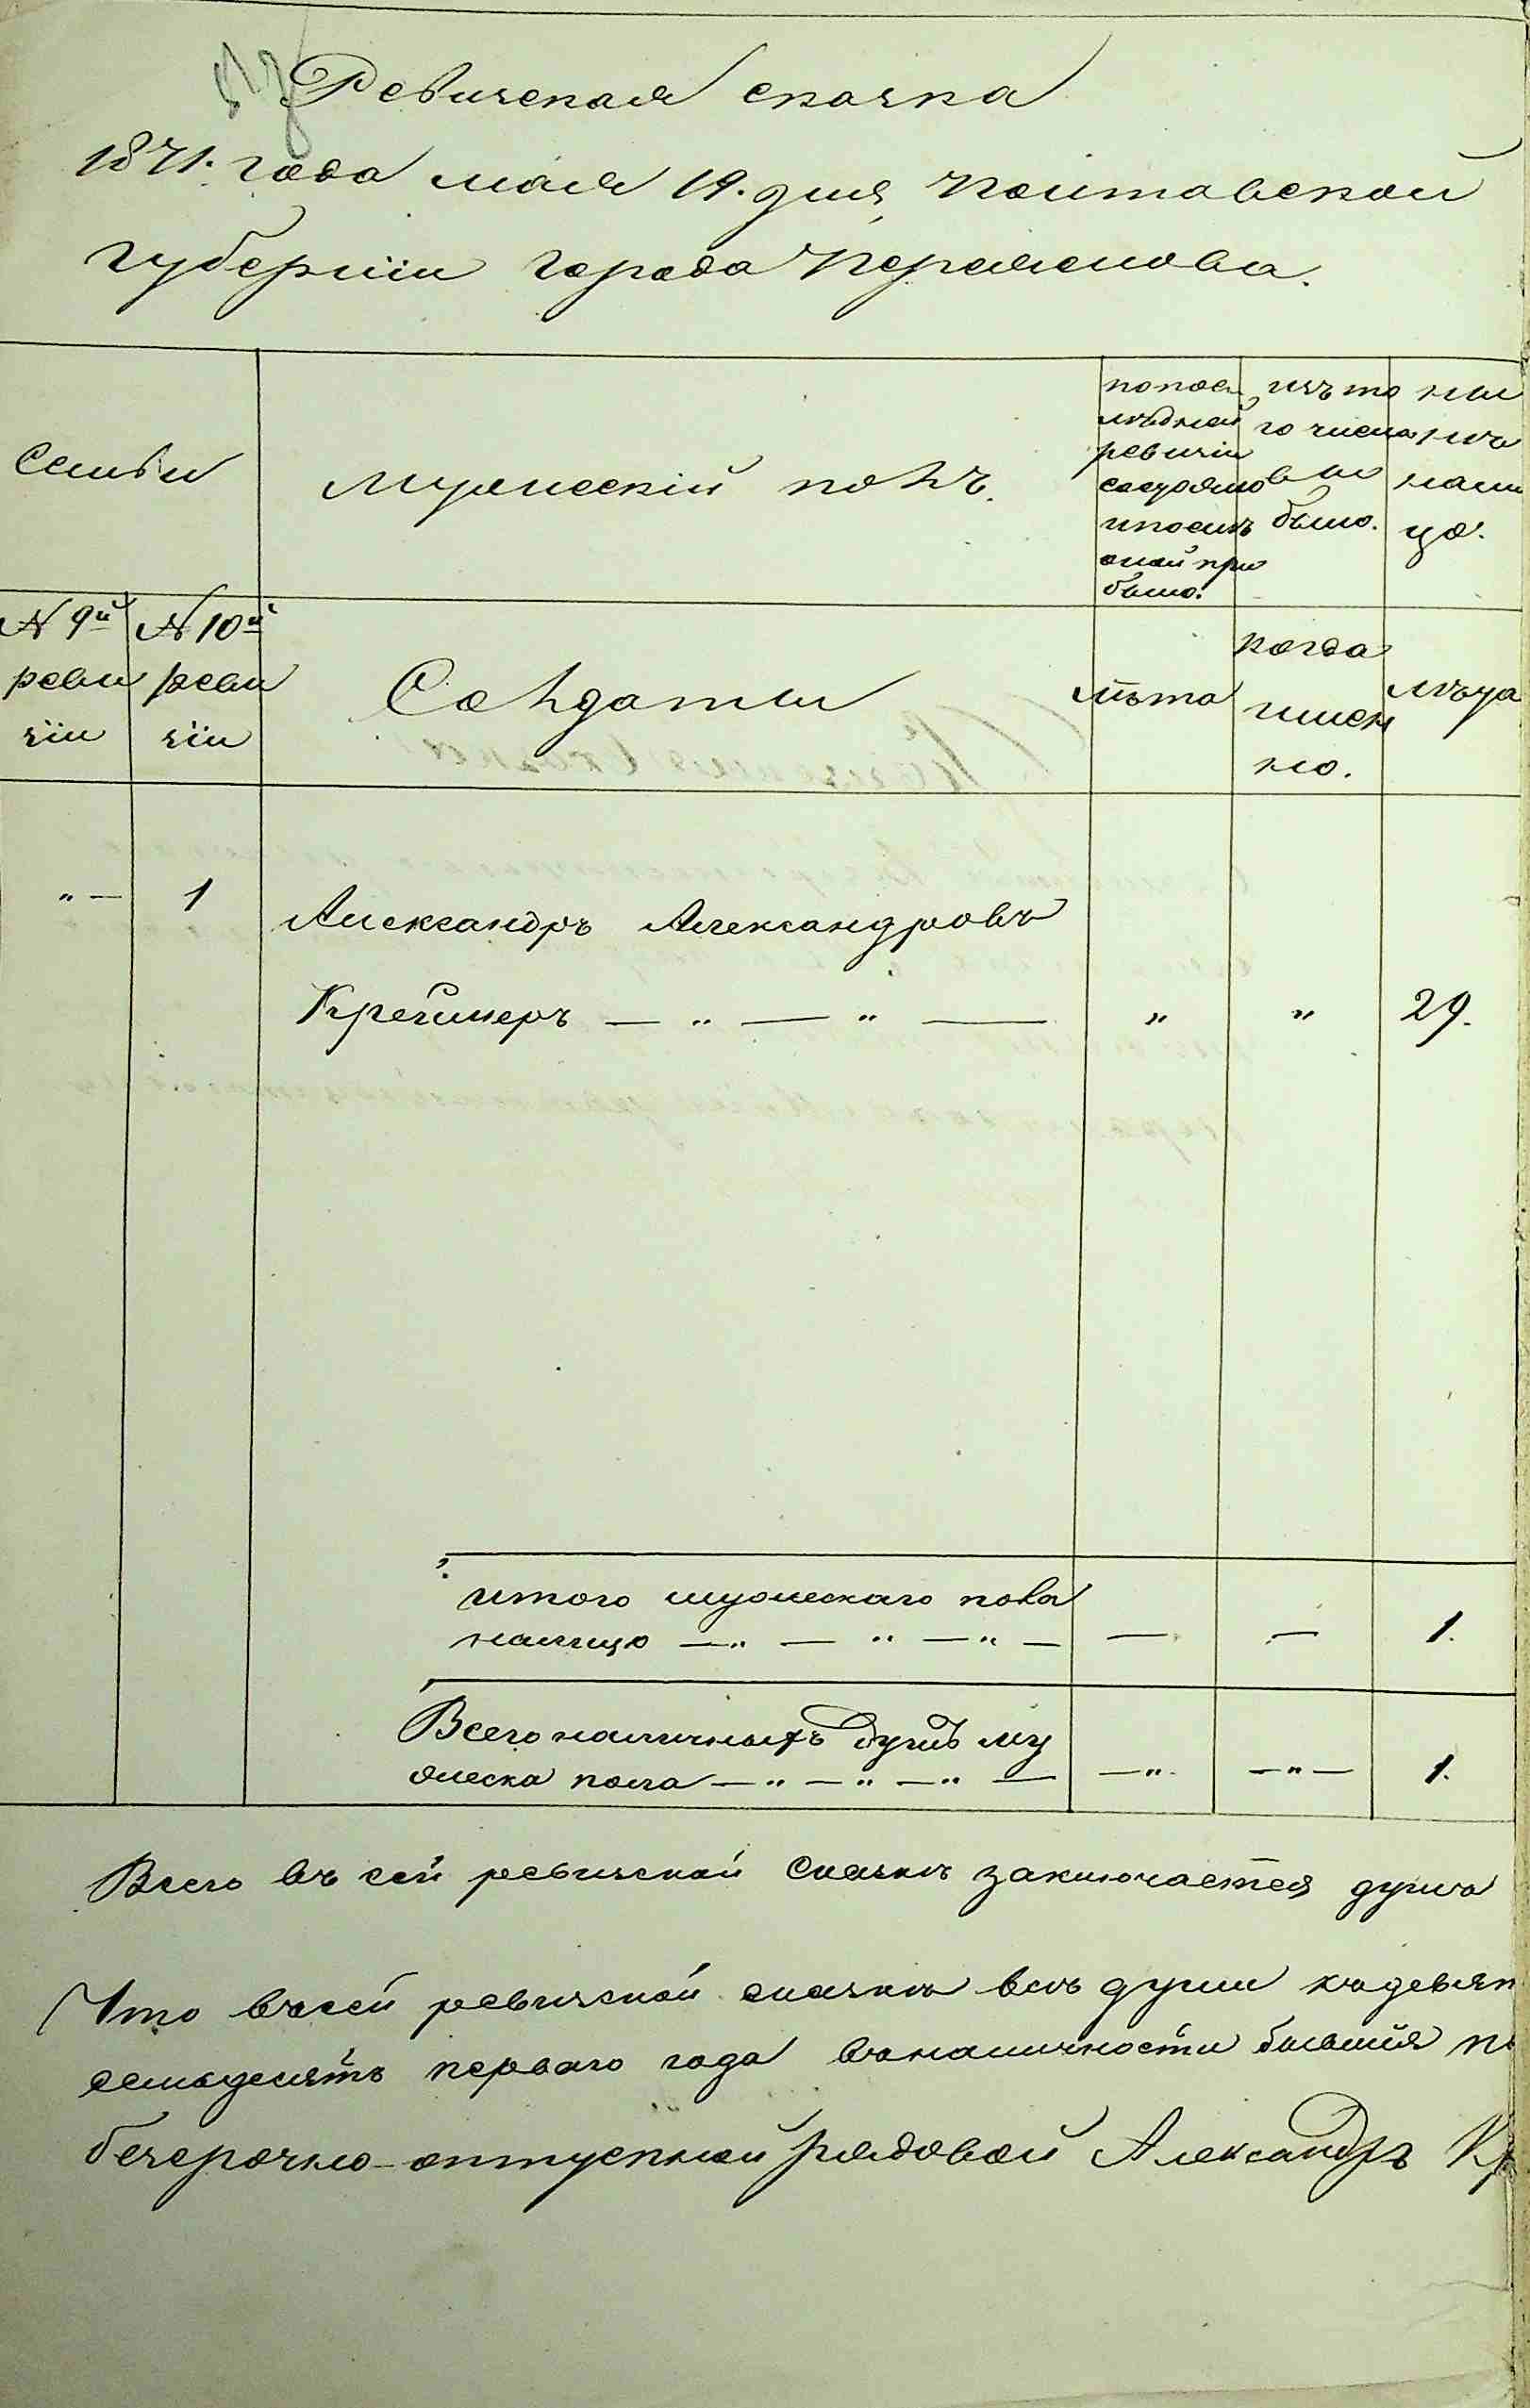 Ревизская сказка
1871. года мая 19. дня, Полтавской
губерніи города Переяслова.
Семьи
Мужескій полъ.
по пос
лѣдней
ревизіи
состояло
и послѣ
оной при
было.
изъ то
го числа
вы
было.
ны
нѣ
нали
цо.
№ 9й
реви
зіи
№ 10й
реви
зіи
Солдаты
лѣта
когда
имен
но.
лѣта
" —
1
Александръ Александровъ
Креймеръ — " — " —
"
"
29.
итого мужескаго пола
налицо — " — " — " —
—
—
1.
Всего наличныхъ душъ му
жеска пола — " — " — " —
— "
— " —
1.
Всего въ сей ревизской сказкѣ заключается душъ
Что въ сей ревизской сказкѣ всѣ души къ девян
семьдесятъ перваго года въ наличности бывшія
безсрочно-отпускной рядовой Александръ Кр